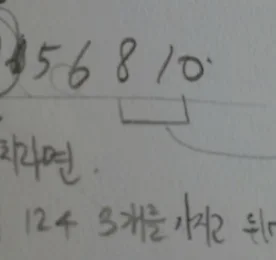 5 6 8 10
라면.
124 3개를 가지고